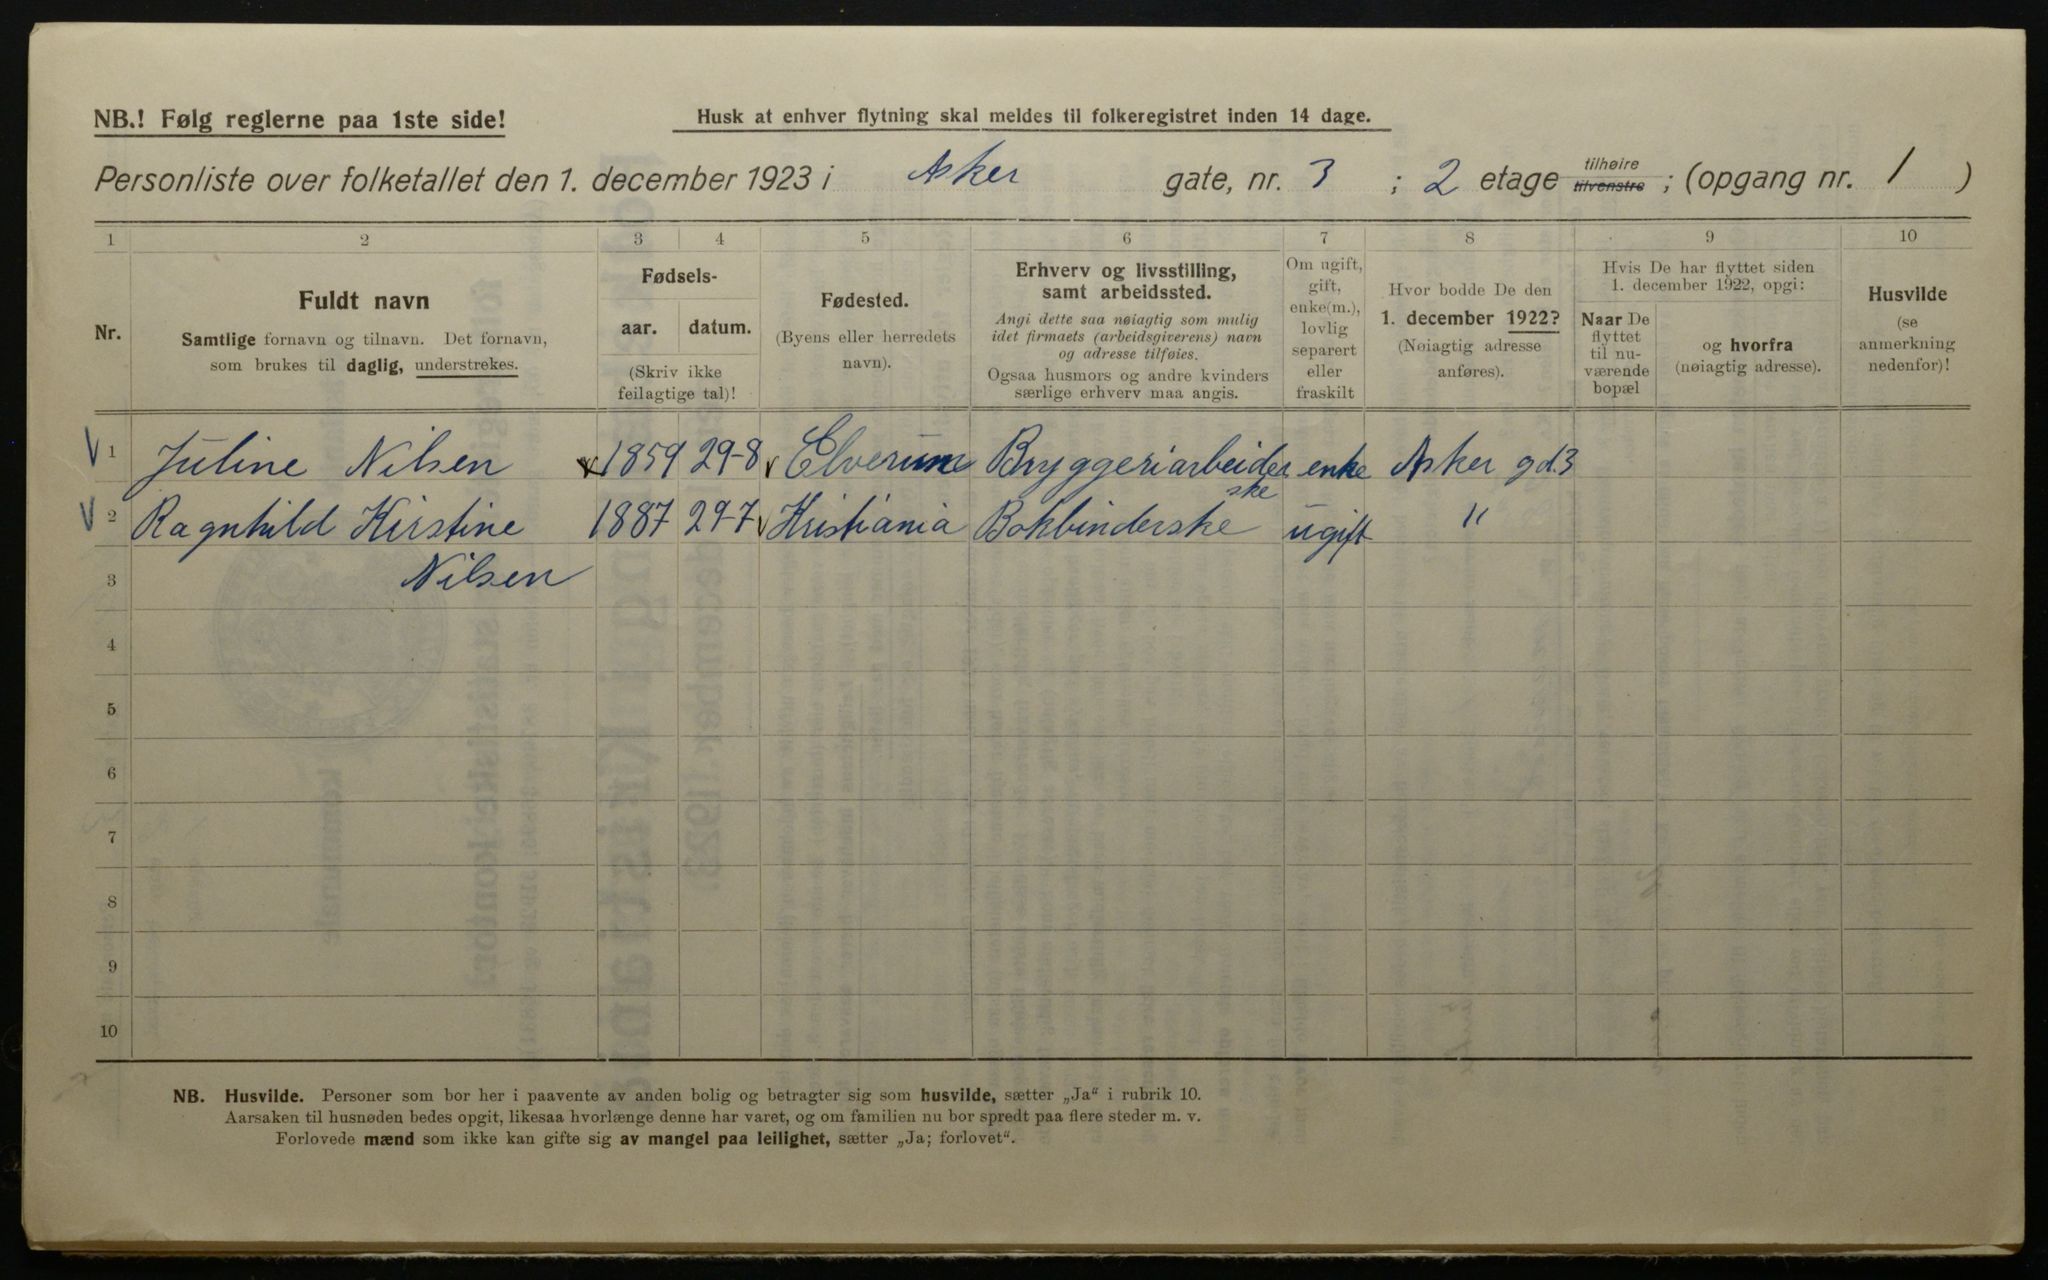 NB.! Følg reglerne paa 1ste side!
Husk at enhver flytning skal meldes til folkeregistret inden 14 dage.
Personliste over folketallet den 1. december 1923 i Asker gate, nr. 3 ; 2 etage tilhøire tilvenstre ; (opgang nr. 1 )
1 2 3 4 5 6 7 8 9 10
Nr.
Fuldt navn
Samtlige fornavn og tilnavn. Det fornavn,
som brukes til daglig, understrekes.
Fødsels-
aar. datum.
(Skriv ikke
feilagtige tal)!
Fødested.
(Byens eller herredets
navn).
Erhverv og livsstilling,
samt arbeidssted.
Angi dette saa nøiagtig som mulig
idet firmaets (arbeidsgiverens) navn
og adresse tilføies.
Ogsaa husmors og andre kvinders
særlige erhverv maa angis.
Om ugift,
gift,
enke(m.),
lovlig
separert
eller
fraskilt
Hvor bodde De den
1. december 1922?
(Nøiagtig adresse
anføres).
Hvis De har flyttet siden
1. december 1922, opgi:
Naar De
flyttet
til nu-
værende
bopæl
og hvorfra
(nøiagtig adresse).
Husvilde
(se
anmerkning
nedenfor)!
V 1 Juline Nilsen 1859 29-8 Elverum Bryggeriarbeider enke Asker gd. 3
ske
V 2 Ragnhild Kirstine 1887 29-7 Kristiania Bokbinderske ugift "
3 Nilsen
4
5
6
7
8
9
10
NB. Husvilde. Personer som bor her i paavente av anden bolig og betragter sig som husvilde, sætter „Ja“ i rubrik 10.
Aarsaken til husnøden bedes opgit, likesaa hvorlænge denne har varet, og om familien nu bor spredt paa flere steder m. v.
Forlovede mænd som ikke kan gifte sig av mangel paa leilighet, sætter „Ja; forlovet“.